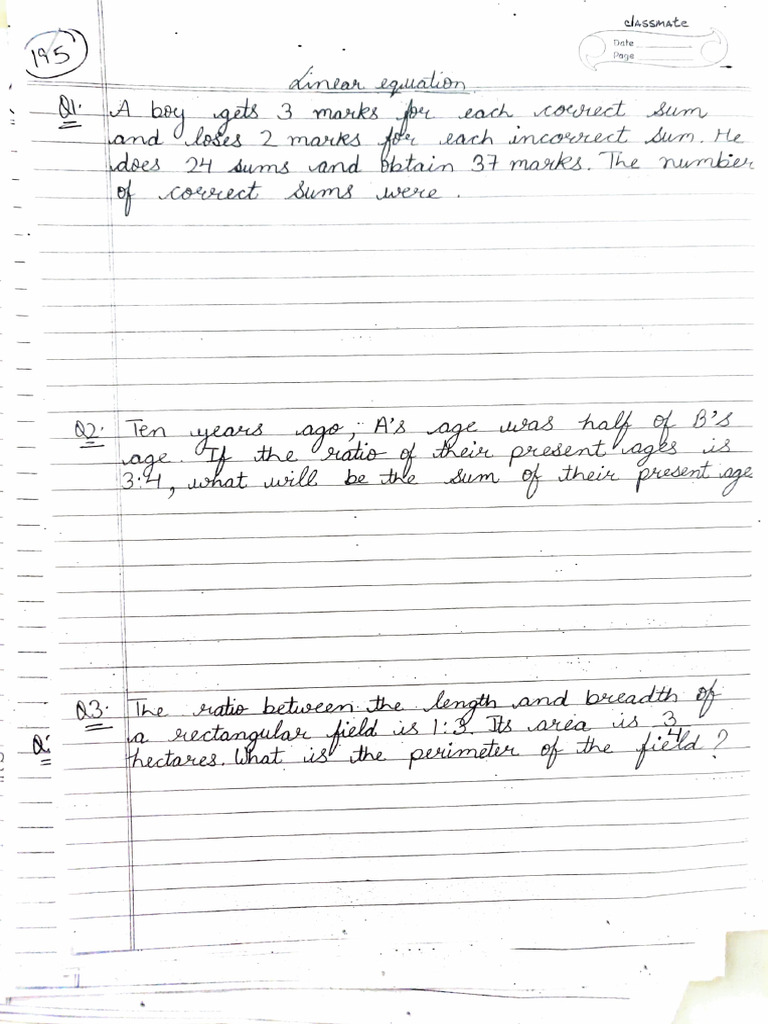 classmate
Date
Page
195
Linear equation
Q1. A boy gets 3 marks for each correct sum
and loses 2 marks for each incorrect sum. He
does 24 sums and obtain 37 marks. The number
of correct sums were.
Q2. Ten years ago, A's age was half of B's
age. If the ratio of their present ages is
3:4, what will be the sum of their present age
Q3. The ratio between the length and breadth of
a rectangular field is 1:3. Its area is 3/4
Q.
hectares. What is the perimeter of the field?